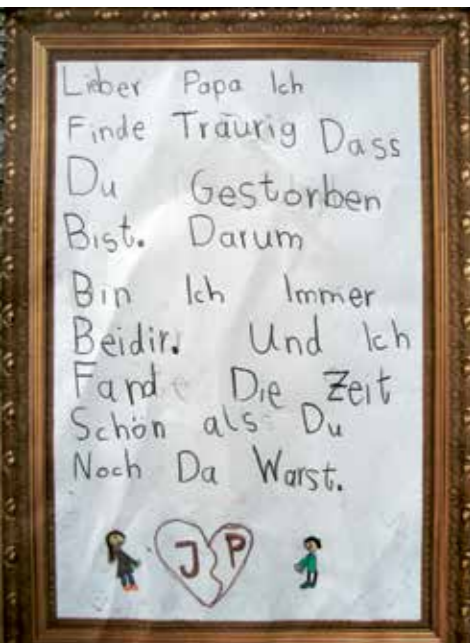 Lieber Papa Ich
Finde Träurig Dass
Du Gestorben
Bist. Darum
Bin Ich Immer
Beidir. Und Ich
Fand Die Zeit
Schön als Du
Noch Da Warst.
J P